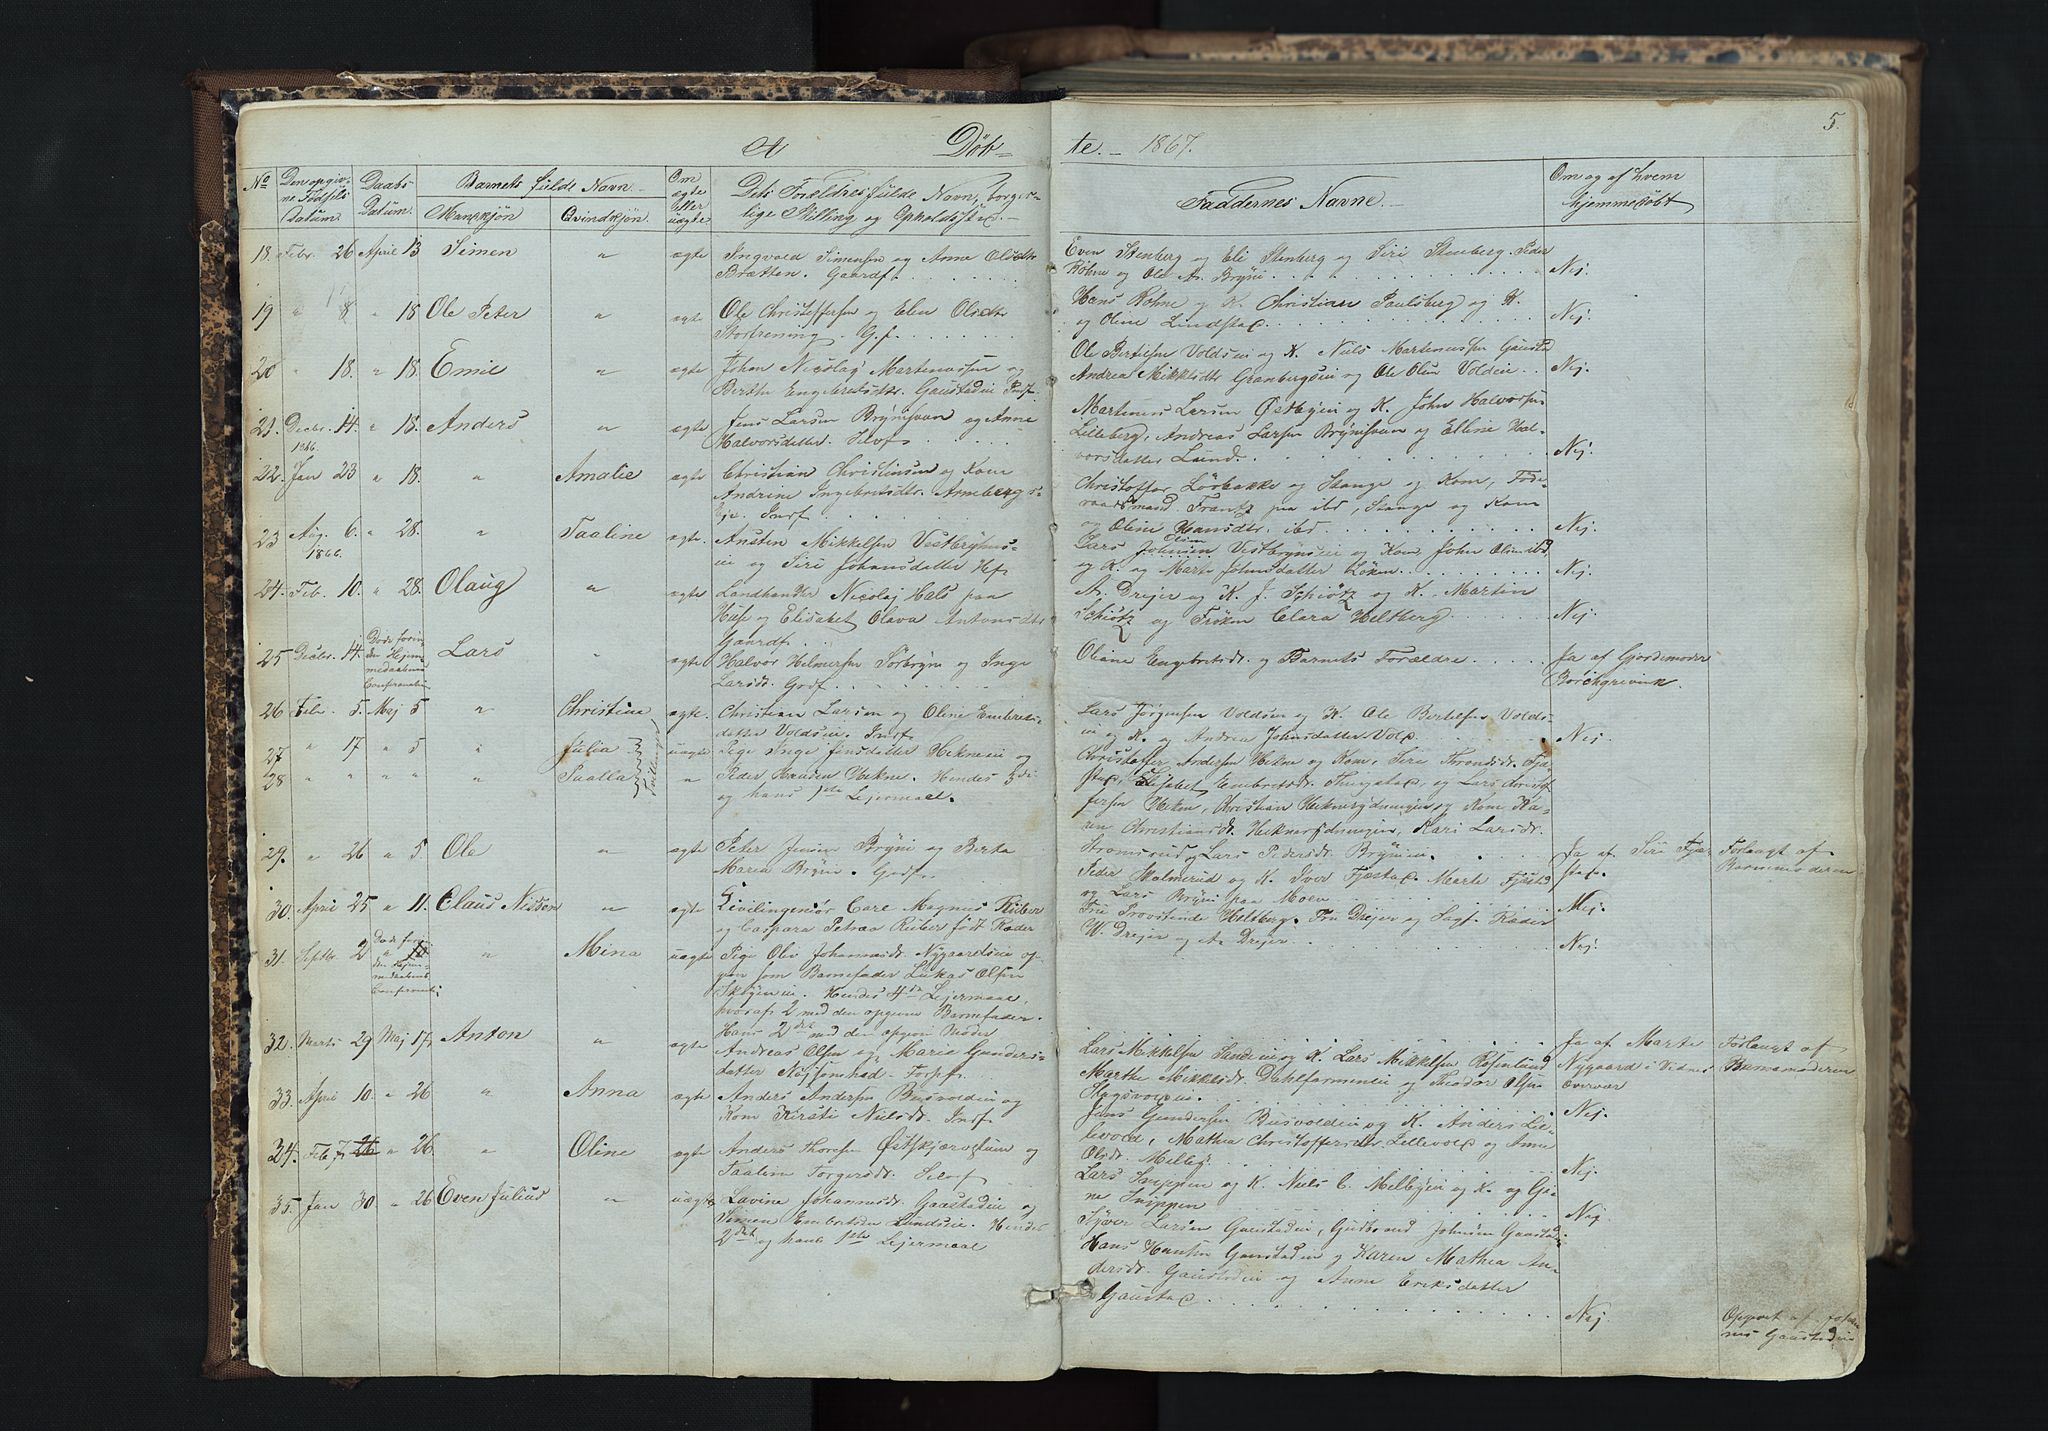 5.
A Döb-
te. - 1867.
No
Den opgiv-
ne Födsels
Datum.
Daabs
Datum.
Barnets fulde Navn
Mandkjön
Qvindkjön.
Om
ægte
eller
uægte
Dets Forældres fulde Navn, borger-
lige Stilling og Opholdssted.
Faddernes Navne.
Om og af hvem
hjemmedöbt
18. Febr. 26 April 13 Simen " ægte
Ingvold Simensen og Anne Olsdtr
Bratten. Gaardf.
Even Stenberg og Eli Stenberg og Siri Stenberg. Peder
Röhne og Ole A. Bryni
Nej.
19 " 8 " 18 Ole Peter " ægte
Ole Christoffersen og Elen Olsdtr
Storfrening. G.f.
Hans Rohne og K. Christian Paulsberg og K.
og Oline Lindstad
Nej.
20 " 18. " 18. Emil " ægte
Johan Nicolay Martenussen og
Berthe Engebretsdtr. Gaustadeie Indf.
Ole Bertelsen Voldseie og K. Niels Martenussen Gaustad
Andrea Mikkelsdtr Granbergseie og Ole Olsen Volden
Nej.
21. Decbr. 14. " 18. Anders " ægte
1866.
Jens Larsen Brynisveen og Anne
Halvorsdatter. Selvf.
Martenus Larsen Östbyeie og K. John Halvorsen
Lilleberg, Andreas Larsen Brynisveen og Elline Hal-
vorsdatter Lund.
Nej.
22. Jan 23 " 18. " Amalie ægte
Christian Christiansen og Kone
Andrine Ingebretsdtr. Arneberg s-
Eje. Indf
Christoffer Lörbakke og Stange og Kone, Föde-
raadsmand Frantz paa ibd, Stange og Kone
og Oline Hansdtr. ibd
Nej.
23 Aug. 6. " 28. " Taaline ægte.
1866.
Austen Mikkelsen Vestbryns-
eie og Siri Johansdatter Hf.
Lars Johnsen Vestbrynseie og Kone, John Olsen ibd
og K. og Marte Johnsdatter Löken
Nej.
24. Feb. 10. " 28. Olaug " ægte
Landhandler Nicolaj Hals paa
Huse og Elisabet Olava Antonsdtr
Gaardf.
A. Drejer og K. J. Schiötz og K. Martin
Schiötz og Fröken Clara Heltberg
Nej.
25 Decbr. 14. Döde forin-
den Hjem-
medaabens
Confirmation Lars " ægte
Halvor Helmersen Sörbryn og Inge
Larsdt. Grdf.
Oliane Engebretsdt. og Barnets Forældre
Ja af Gjordemoder
Borchgrevink.
26 Febr. 5. Maj 5 " Christine ægte.
Christian Larsen og Oline Embrets-
datter Voldseie. Indf.
Lars Jörgensen Voldseie og K. Ole Bertelsen Volds-
eie og K. og Andrea Johnsdatter Vold
Nej
27 " 17 " 5 " Julia uægte
28 " " " " " Taalla "
Tvillinger
Pige Inge Jensdatter Hekneeie og
Peder Hansen Hekne. Hendes 3die
og hans 1ste Lejermaal.
Christoffer Andersen Hekne og Kone, Siri Throndsdt. Fjæ-
stad, Elisabet Embretsdt. Thingstad, og Lars Christof-
fersen Hekne, Christian Heknerydningen og Kone Ka-
ren Christiansdt. Heknerydningen, Kari Larsdt.
Stromsrud, Lars Pedersdt. Brynien.
29. " 26 " 5. Ole " ægte
Peter Jensen Bryni og Berta
Maria Bryni. Gaardf.
Peder Malmerud og K. Iver Fjæstad. Marte Fjæstad
og Lars Bryni paa Moen
Ja af Siri Fjæ-
stad
Forlangt af
Barnemoderen
30. April 25 " 11. Claus Nissen " ægte
Civilingeniör Carl Magnus Riiber
og Caspara Petraa Riiber födt Ræder
Fru Provstinde Heltberg. Fru Drejer og Sagf. Ræder
W. Drejer og A. Drejer
Nej.
Nej
31. Septbr. 2 Döde forin-
den Hjem-
medaabens
Confirmati: " Mina uægte
Pige Oliv Johannesdt. Nygaardseie op-
given som Barnefader Lukas Olsen
Skbyeneie. Hendes 4de Lejermaal,
hvoraf 2 med den opgivne Barnefader.
Hans 2det med den opgivne Moder
Ja af Marte
Nygaard i Vidnes
Overvær
Forlangt af
Barnemoderen
32. Marts 29 Maj 17 Anton " ægte
Andreas Olsen og Marie Gunders-
datter Nöjsomhed - Torpf.
Lars Mikkelsen Sandeie og K. Lars Mikkelsen Rosenlund
Marthe Mikkelsdt. Dahlfarmeneie og Theodor Olsen
Skogsvolden.
Nej.
33. April 10. " 26 " Anna ægte
Anders Andersen Busvoldeie og
Kone Kirsti Nielsdt. Indf.
Jens Gundersen Busvolden og K. Anders Lil-
levold, Mathea Christoffersdtr. Lillevold og Anne
Olsdt. Melby
Nej.
34. Feb. 7 26 " 26. " Oline ægte
Anders Thoresen Östskjæraasen og
Taaline Torgersdt. Selvf
Lars Snippen og K. Niels C. Melbyeie og K. og Gi-
ne Snippen
Nej.
35. Jan 30. " 26 Even Julius " uægte
Lavine Johannesdt. Gaustadeie og
Simen Embretsen Lundseie. Hendes
2det og hans 1ste Lejermaal
Syver Larsen Gaustadeie, Gudbrand Johnsen Gaustadeie
Hans Hansen Gaustadeie og Karen Mathea An-
dersdt. Gaustadeie og Anne Eriksdatter
Gaustad
Nej
Opgivet af Johan-
nes Gaustadeie